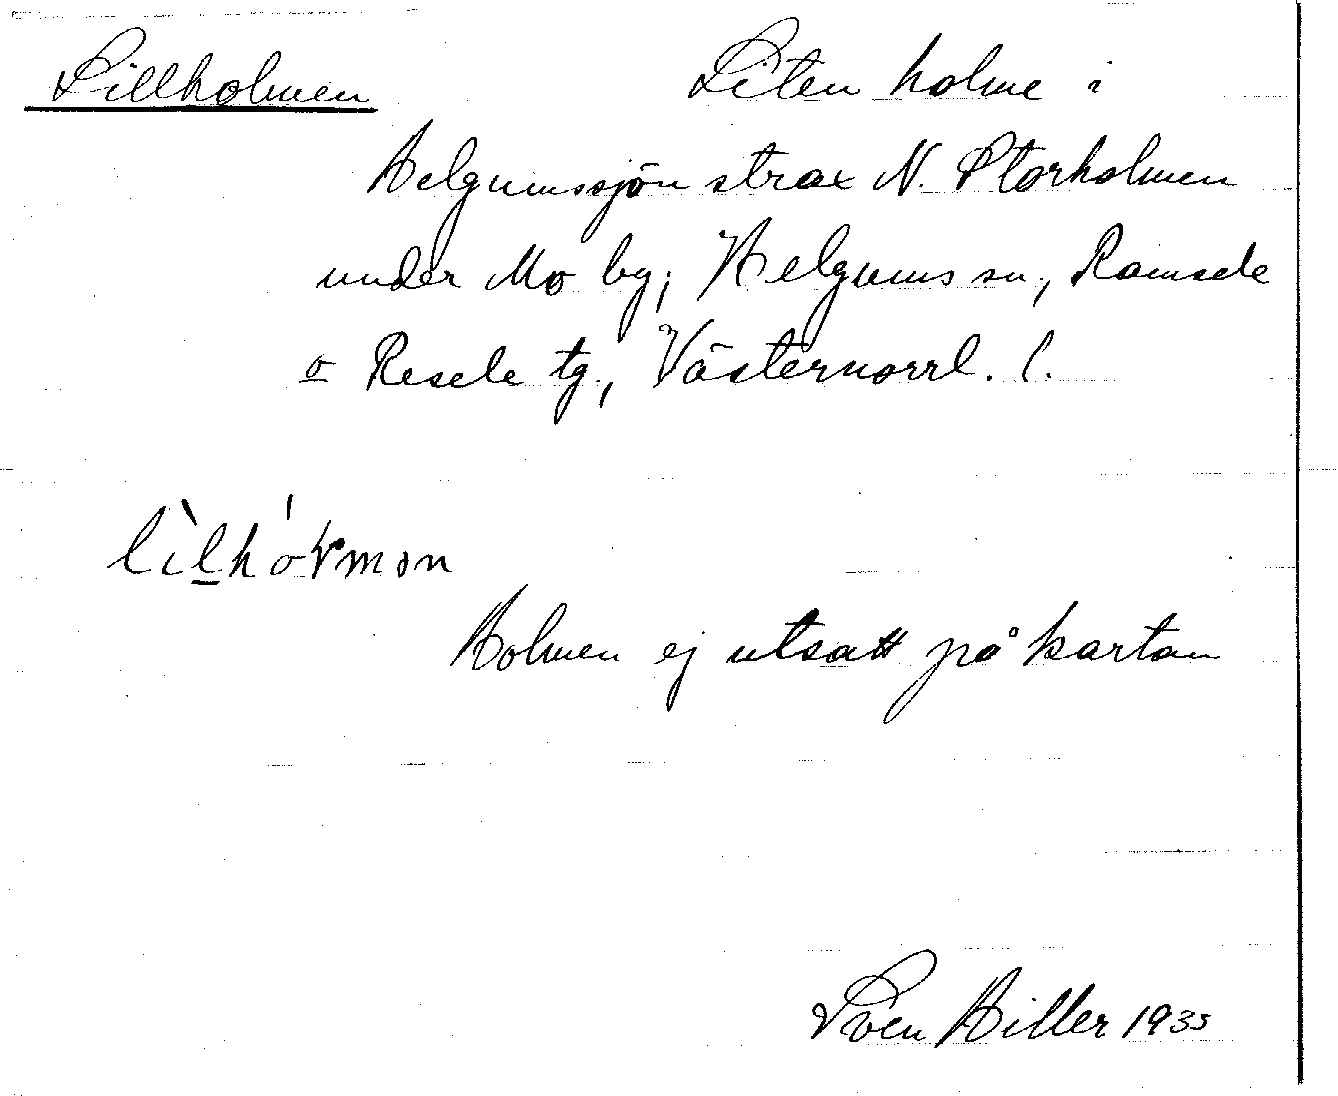 Lillholmen Liten holme i
Helgumssjön strax N. Storholmen
under Mo by; Helgums sn, Ramsele
o Resele tg, Västernorrl. l.
Holmen ej utsatt på kartan
Sven Hiller 1935